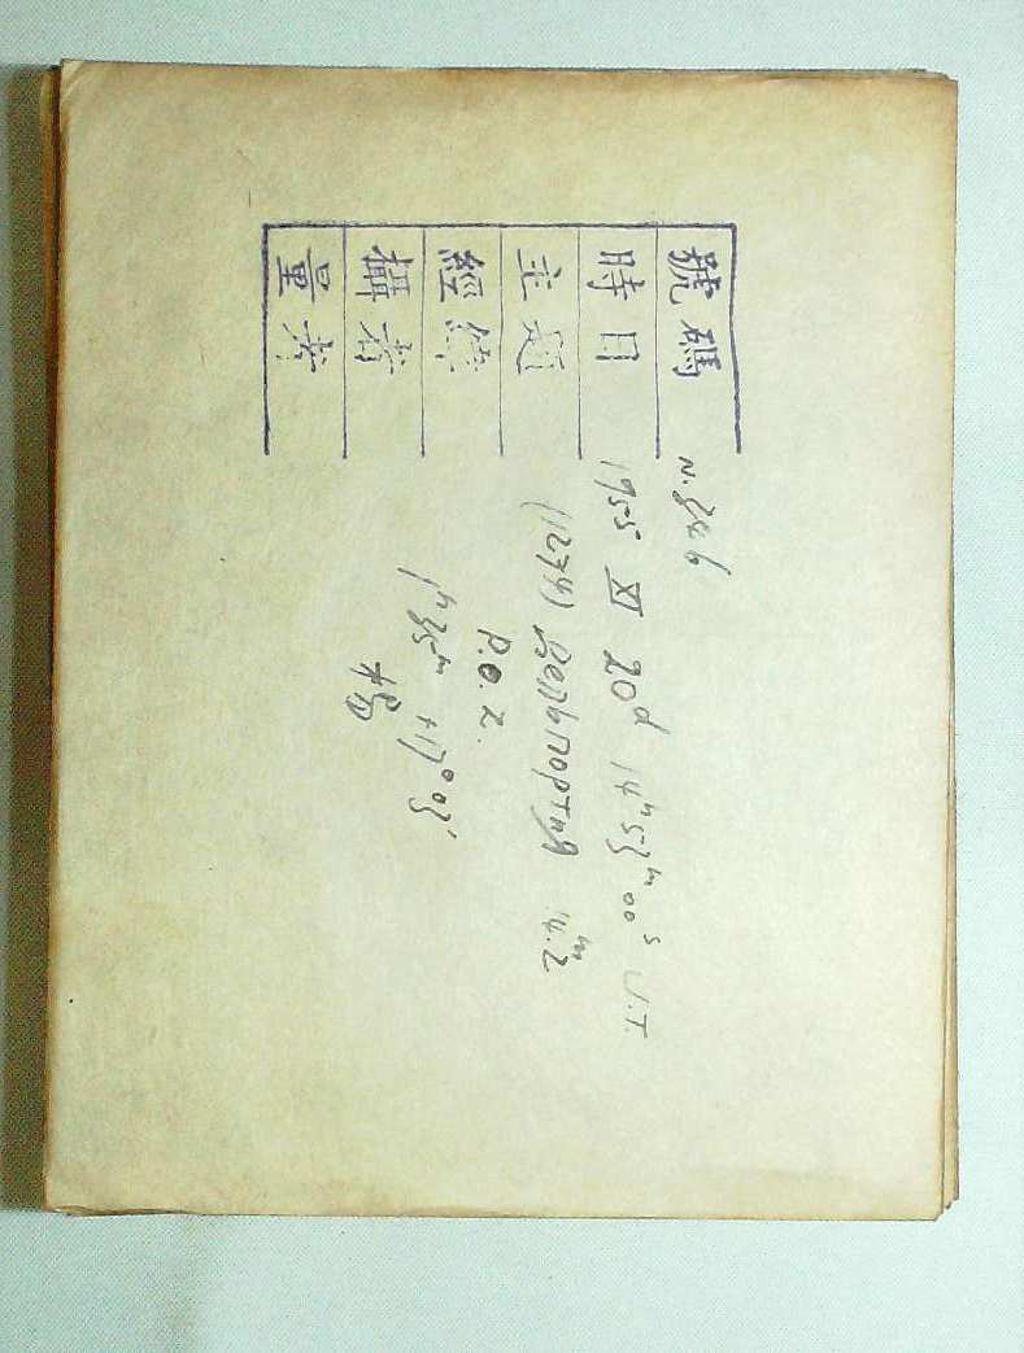 號碼 N.
時日 1955 XI 20ᵈ 14ʰ 53ᵐ 00ˢ U.T.
主題 (1274) Дельпортия 14.ᵐ2
P.O. 2.
經緯 1ʰ35ᵐ +17°03′
攝者
量者